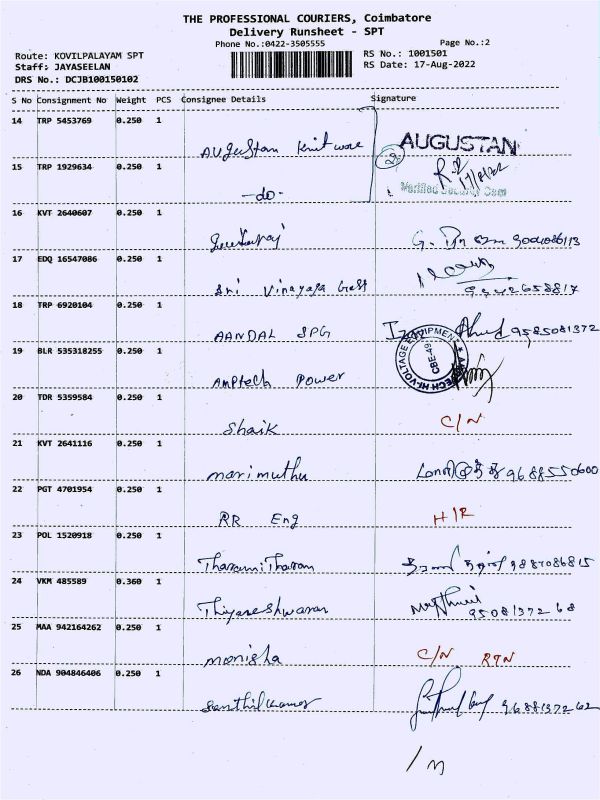 THE PROFESSIONAL COURIERS, Coimbatore
Delivery Runsheet - SPT
Phone No.:0422-3505555
Page No.:2
Route: KOVILPALAYAM SPT
RS No.: 1001501
Staff: JAYASEELAN
RS Date: 17-Aug-2022
DRS No.: DCJB100150102
S No Consignment No Weight PCS Consignee Details Signature
14 TRP 5453769 0.250 1 Augustan Knit ware AUGUSTAN
15 TRP 1929634 0.250 1 -do-
16 KVT 2640607 0.250 1
17 EDQ 16547086 0.250 1 Sri Vinayaga
18 TRP 6920104 0.250 1 AANDAL SPG 9585081372
19 BLR 535318255 0.250 1 Amptech Power CBE-49
20 TDR 5359584 0.250 1 Shaik C/N
21 KVT 2641116 0.250 1 marimuthu 9688550600
22 PGT 4701954 0.250 1 RR Eng H/R
23 POL 1520918 0.250 1 Tharani Tharam
24 VKM 485589 0.360 1 Thiyaneshwaran
25 MAA 942164262 0.250 1 monisha C/N RTN
26 NDA 904846406 0.250 1